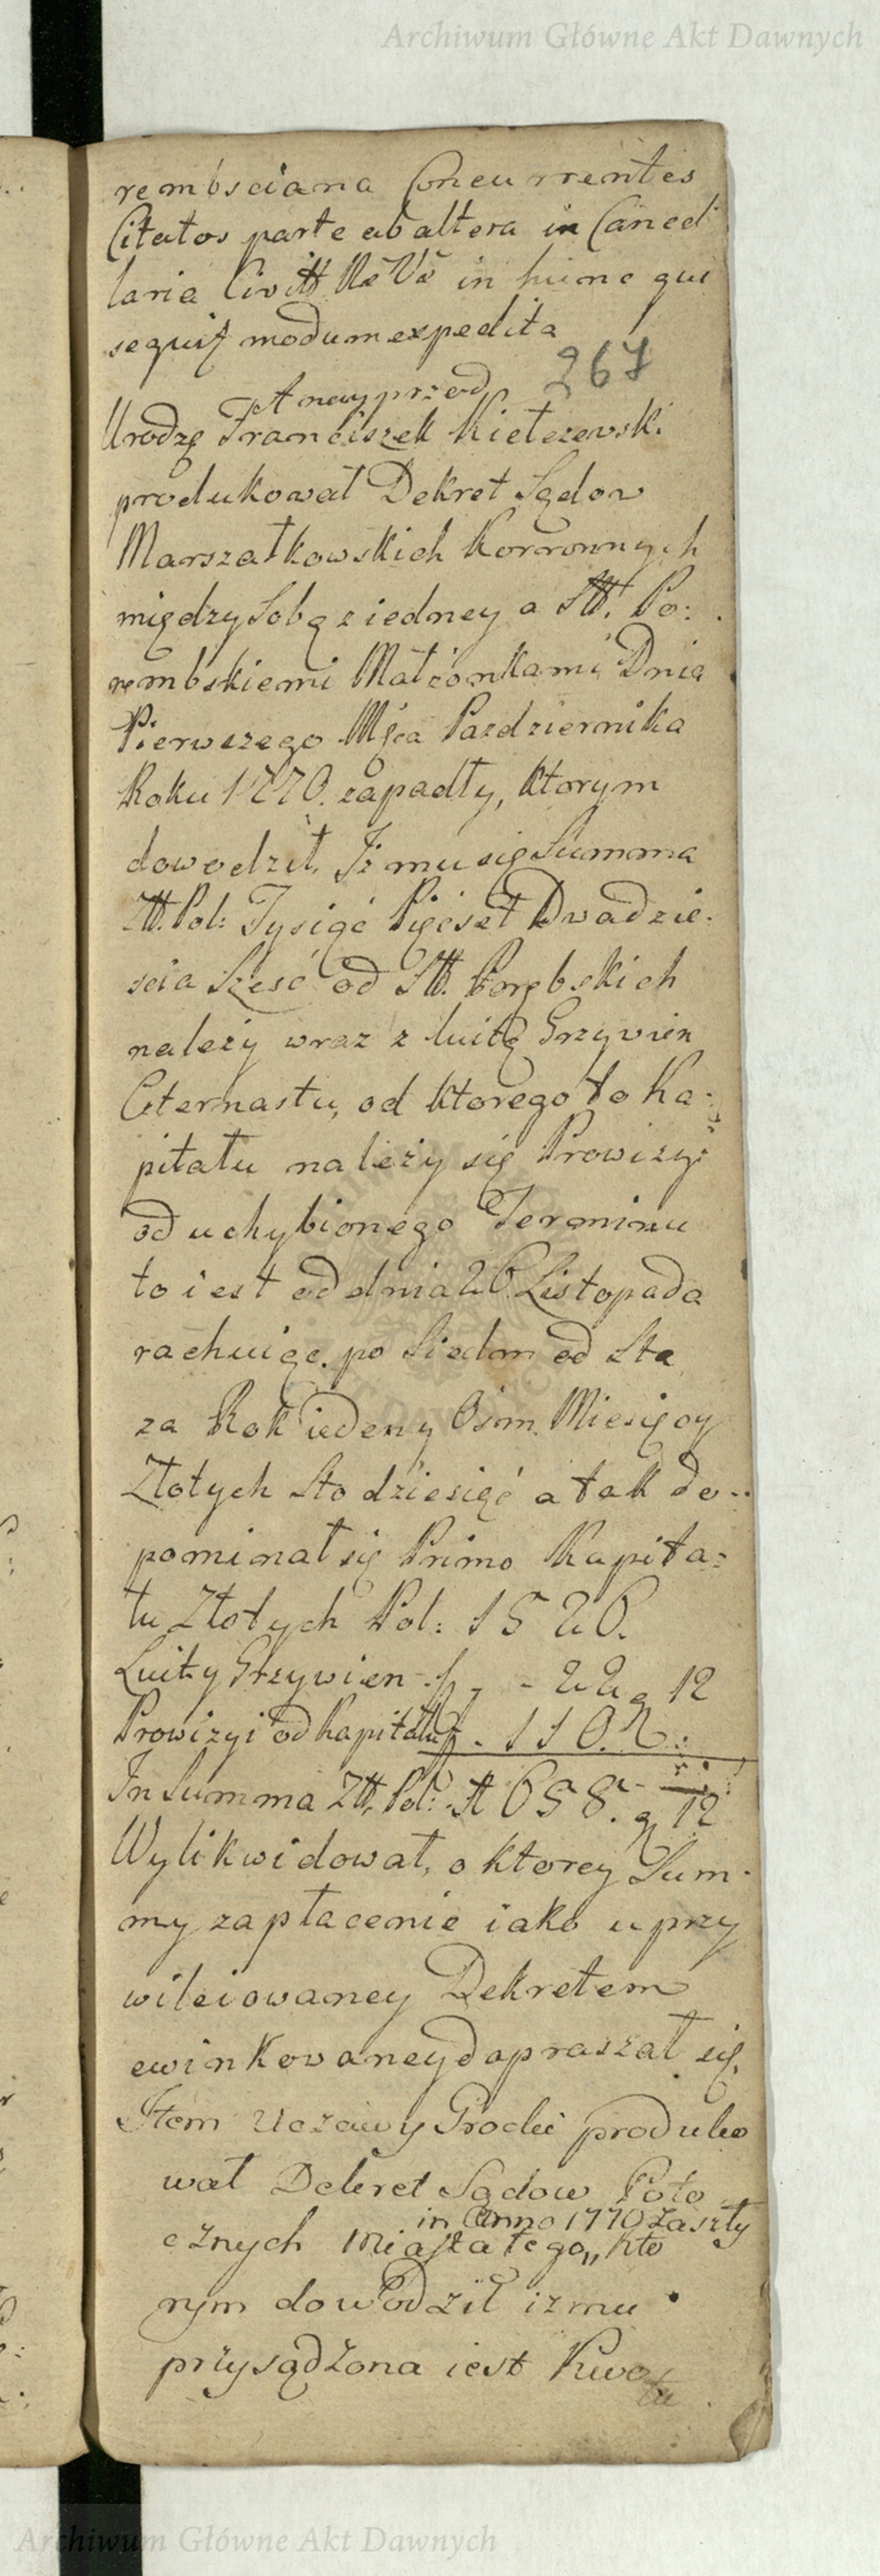 Archiwum Główne Akt Dawnych
rembsciana Concurrentes
Citatos parte ab altera in Cancel
laria Civitt Ræ Væ in hunc qui
sequiť modum expedita
267
A nayprzod
Urodzę Franciszek Kietczewski
produkował Dekret Sądow
Marszałkowskich Korronnych
między Sobą z iedney a Stt. Po:
rembskiemi Małżonkami Dnia
Pierwszego Mśca Pazdziernika
Roku 1770. zapadły, ktorym
dowodził, Jż mu się Summa
Ztt. Pol: Tysiąć Pięćset Dwadzie-
scia Szesć od Stt. Porębskich
należy wraz z luitą Grzywien
Czternastu, od ktorego to Ka-
pitału należy się Prowizyi
od uchybionego Terminu
to iest od dnia 26 Listopada
rachuiąc po Siedm od Sta
za Rok ieden y Ośm Miesięcy
Złotych Sto dziesięć a tak do-
pominał się Primo Kapita=
łu Złotych Pol: 1526.
Luity Grzywien - - 22 g 12
Prowizyi od Kapitału - 110.
In Summa Ztt. Pol: 1658. g 12
Wylikwidował, o ktorey Sum-
my zapłacenie iako uprzy
wileiowaney Dekretem
ewinkowaney dopraszał się.
Item Uczciwy Grocki produko
wał Dekret Sądow Poto
in Anno 1770 zaszły
cznych Miasta tego,, kto
rym dowodził iż mu
przysądzona iest Kwo
ta
Archiwum Główne Akt Dawnych